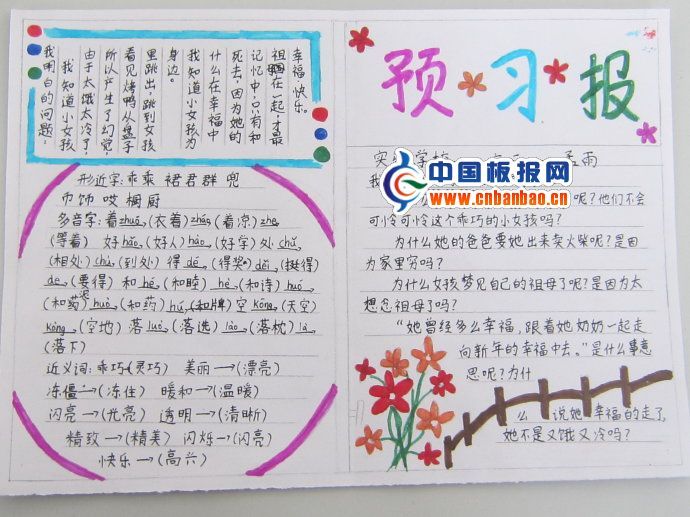 预习报
实
雨
中国板报网
www.cnbanbao.cn
呢?他们不会
可怜可怜这个乖巧的小女孩吗?
为什么她的爸爸要她出来卖火柴呢?是因
为家里穷吗?
为什么女孩梦见自己的祖母了呢?是因为太
想念祖母了吗?
“她曾经多么幸福,跟着她奶奶一起走
向新年的幸福中去。”是什么事意
思呢?为什
么 说她幸福的走了
她不是又饿又冷吗?
我明白的问题:
我知道小女孩
由于太饿太冷了,
所以产生了幻觉,
看见烤鸭从盘子
里跳出,跳到女孩
身边。
我知道小女孩为
什么在幸福中
死去,因为她的
记忆中,只有和
祖母在一起,才最
幸福快乐。
形近字:乖乘 裙君群 兜
巾饰 哎 橱厨
多音字:着zhuó(衣着)zháo(着凉)zhe
(等着) 好hǎo(好人)hào(好学)处chù
(相处)chù(到处)得dé(得奖)děi(挺得
de(要得)和hé(和睦)hè(和诗)huó
(和泥)huò(和药)hú(和牌)空kōng(天空)
kòng(空地)落luò(落选)lào(落枕)là
(落下)
近义词:乖巧→(灵巧) 美丽→(漂亮)
冻僵→(冻住) 暖和→(温暖)
闪亮→(光亮) 透明→(清晰)
精致→(精美) 闪烁→(闪亮)
快乐→(高兴)